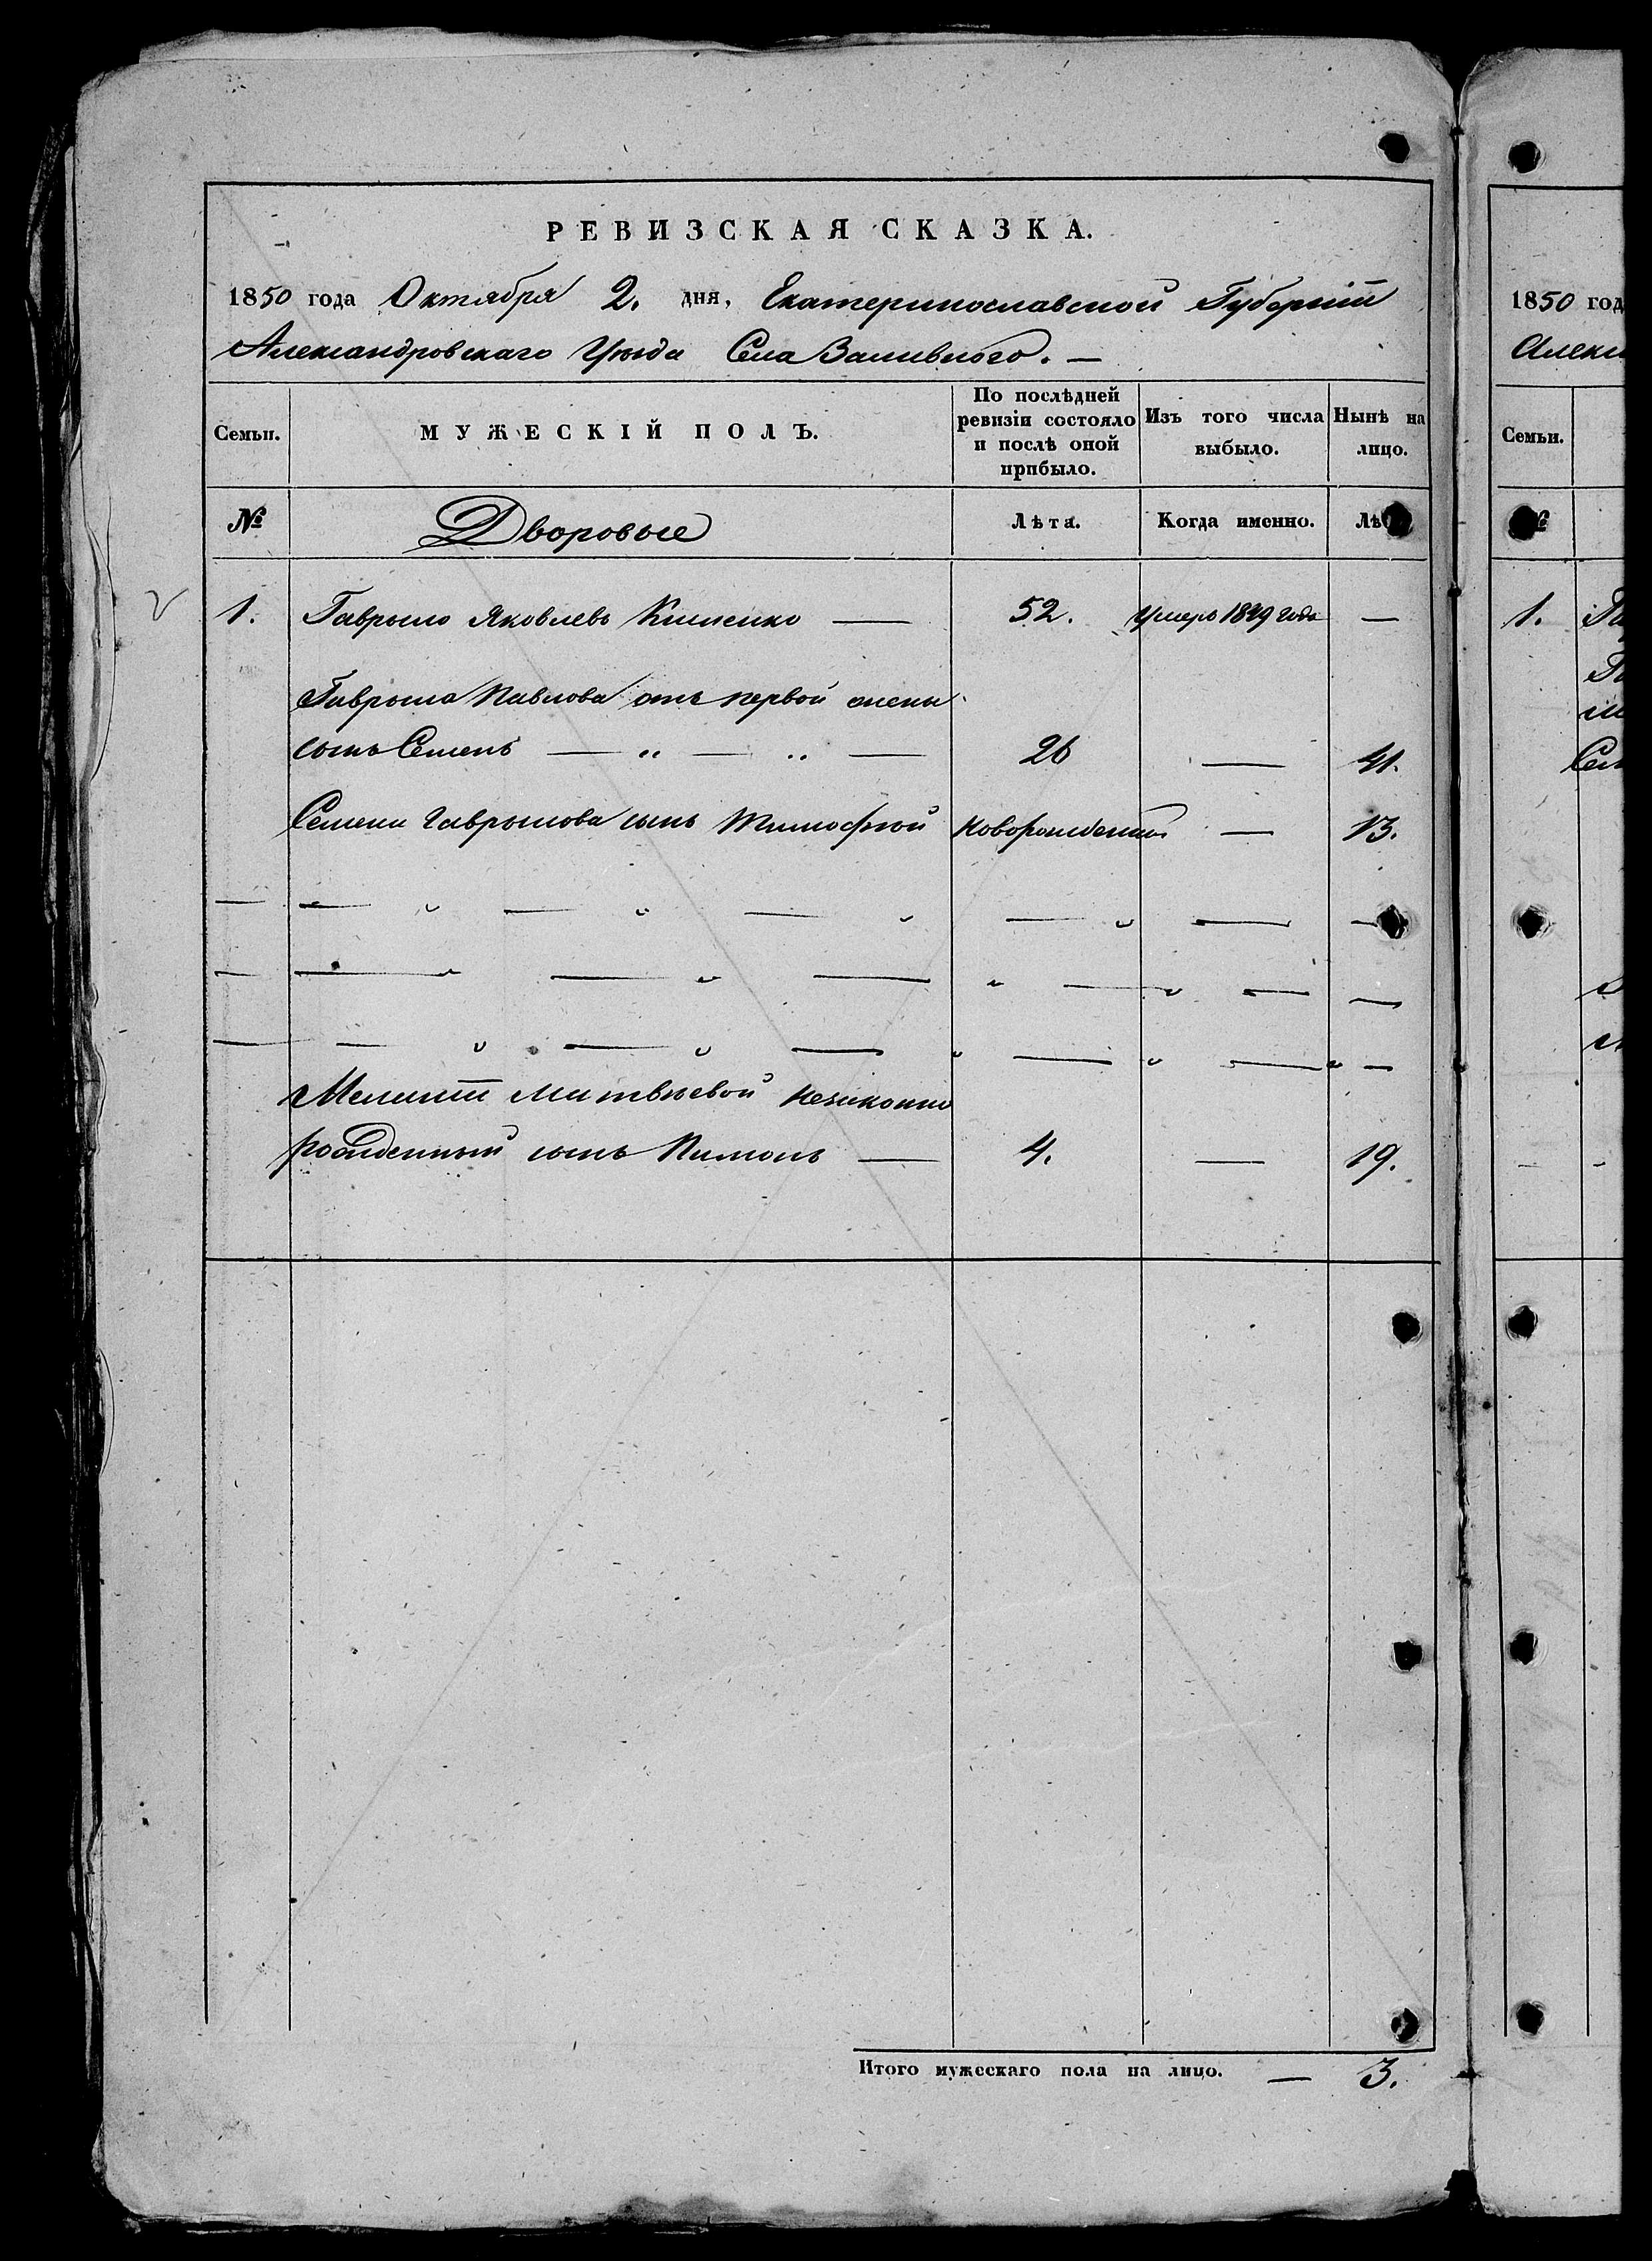 РЕВИЗСКАЯ СКАЗКА.
1850 года Октября 2. дня, Екатеринославской Губерніи
Александровскаго Уѣзда Села Заливного. —
Семьи. МУЖЕСКІЙ ПОЛЪ. По послѣдней ревизіи состояло и послѣ оной прибыло. Изъ того числа выбыло. Нынѣ на лицо.
№ Дворовые Лѣта. Когда именно. Лѣ
1. Гаврыло Яковлевъ — 52. Умеръ 1849 года —
Гаврыла Павлова отъ первой жены
сынъ Семенъ — " — " — 26 — 41.
Семена Гаврылова сынъ Тимофѣй новорожденный — 13.
Меланіи Матвѣевой незаконно
рожденный сынъ Пимонъ — 4. — 19.
Итого мужескаго пола на лицо. — 3.
1850 год
Алекс
Семьи.
№
1. Га
Сем